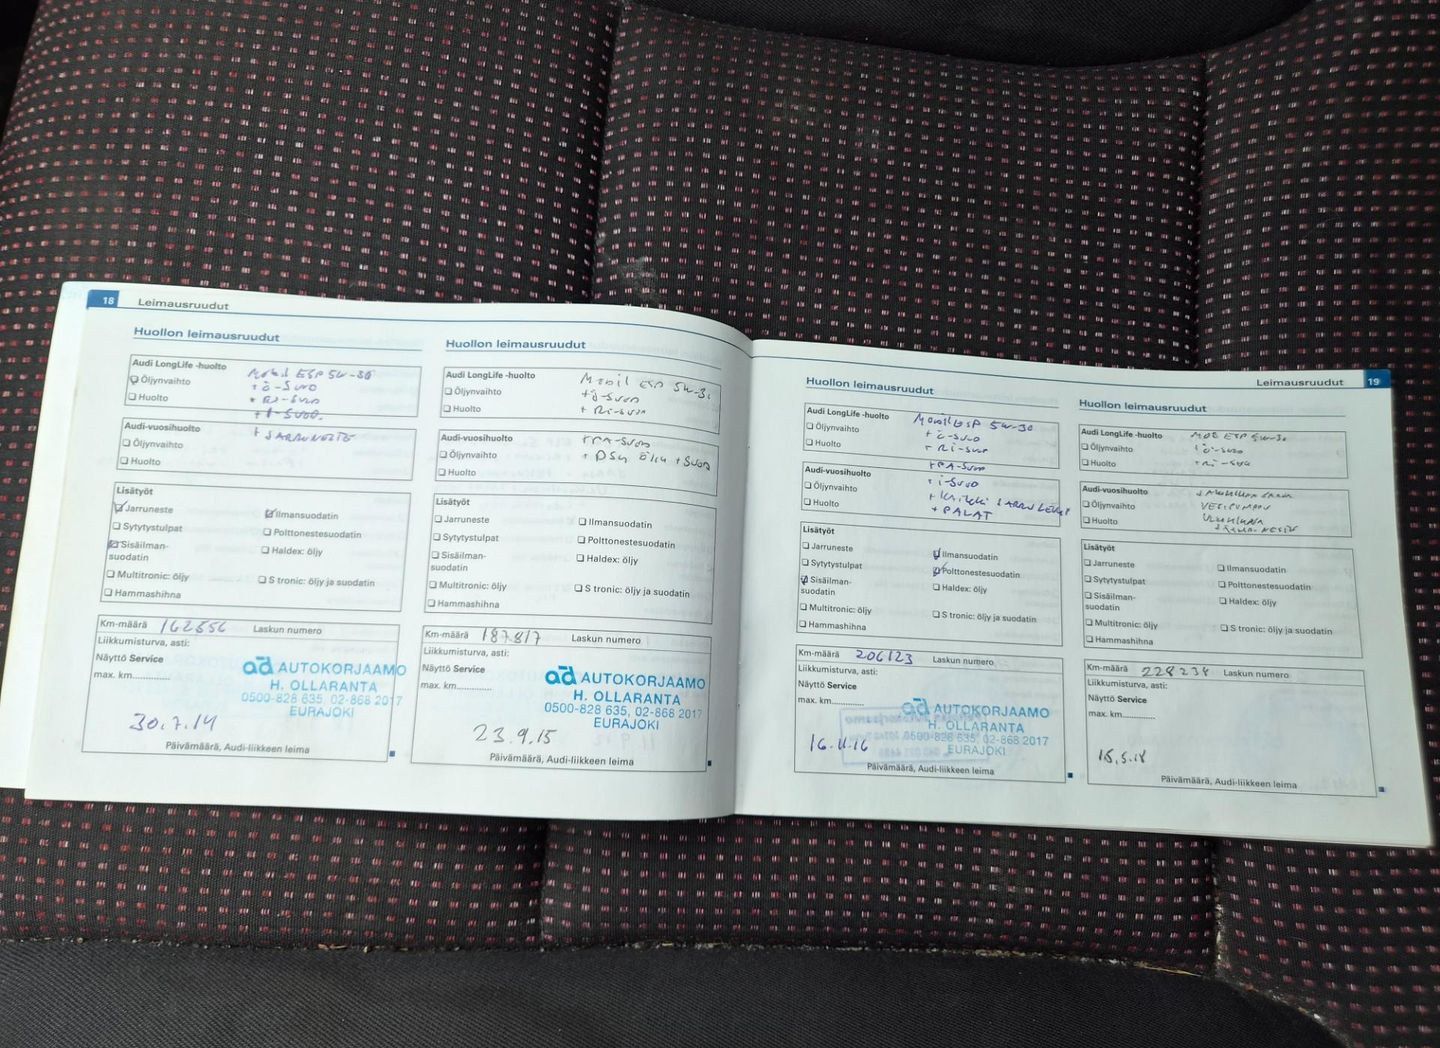 18 Leimausruudut
Huollon leimausruudut
Audi LongLife -huolto
Mobil ESP 5W-30
Öljynvaihto
+ ö-SUOD
Huolto
+ Ri-SUOD
Audi-vuosihuolto
+ JARRUNESTE
Öljynvaihto
Huolto
Lisätyöt
Jarruneste
Ilmansuodatin
Sytytystulpat
Polttonestesuodatin
Sisäilman-
suodatin
Haldex: öljy
Multitronic: öljy
S tronic: öljy ja suodatin
Hammashihna
Km-määrä 162556 Laskun numero
Liikkumisturva, asti:
Näyttö Service
max. km.............
ad AUTOKORJAAMO
H. OLLARANTA
0500-828 635, 02-868 2017
EURAJOKI
30.7.14
Päivämäärä, Audi-liikkeen leima
Huollon leimausruudut
Audi LongLife -huolto
Mobil ESP 5W-30
Öljynvaihto
+ ö-SUOD
Huolto
+ Ri-SUOD
Audi-vuosihuolto
+ PA-SUOD
Öljynvaihto
+ DSG ÖLJY + SUOD
Huolto
Lisätyöt
Jarruneste
Ilmansuodatin
Sytytystulpat
Polttonestesuodatin
Sisäilman-
suodatin
Haldex: öljy
Multitronic: öljy
S tronic: öljy ja suodatin
Hammashihna
Km-määrä 187817 Laskun numero
Liikkumisturva, asti:
Näyttö Service
max. km.............
ad AUTOKORJAAMO
H. OLLARANTA
0500-828 635, 02-868 2017
EURAJOKI
23.9.15
Päivämäärä, Audi-liikkeen leima
Leimausruudut 19
Huollon leimausruudut
Audi LongLife -huolto
Mobil ESP 5W-30
Öljynvaihto
+ ö-SUOD
Huolto
+ Ri-SUOD
Audi-vuosihuolto
+ PA-SUOD
Öljynvaihto
+ i-SUOD
Huolto
+ PALAT
Lisätyöt
Jarruneste
Ilmansuodatin
Sytytystulpat
Polttonestesuodatin
Sisäilman-
suodatin
Haldex: öljy
Multitronic: öljy
S tronic: öljy ja suodatin
Hammashihna
Km-määrä 206123 Laskun numero
Liikkumisturva, asti:
Näyttö Service
max. km.............
ad AUTOKORJAAMO
H. OLLARANTA
0500-828 635, 02-868 2017
EURAJOKI
16.11.16
Päivämäärä, Audi-liikkeen leima
Huollon leimausruudut
Audi LongLife -huolto
MOB ESP 5W-30
Öljynvaihto
+ ö-SUOD
Huolto
+ Ri-SUOD
Audi-vuosihuolto
Öljynvaihto
VESIPUMPPU
Huolto
Lisätyöt
Jarruneste
Ilmansuodatin
Sytytystulpat
Polttonestesuodatin
Sisäilman-
suodatin
Haldex: öljy
Multitronic: öljy
S tronic: öljy ja suodatin
Hammashihna
Km-määrä 228234 Laskun numero
Liikkumisturva, asti:
Näyttö Service
max. km.............
15.5.18
Päivämäärä, Audi-liikkeen leima